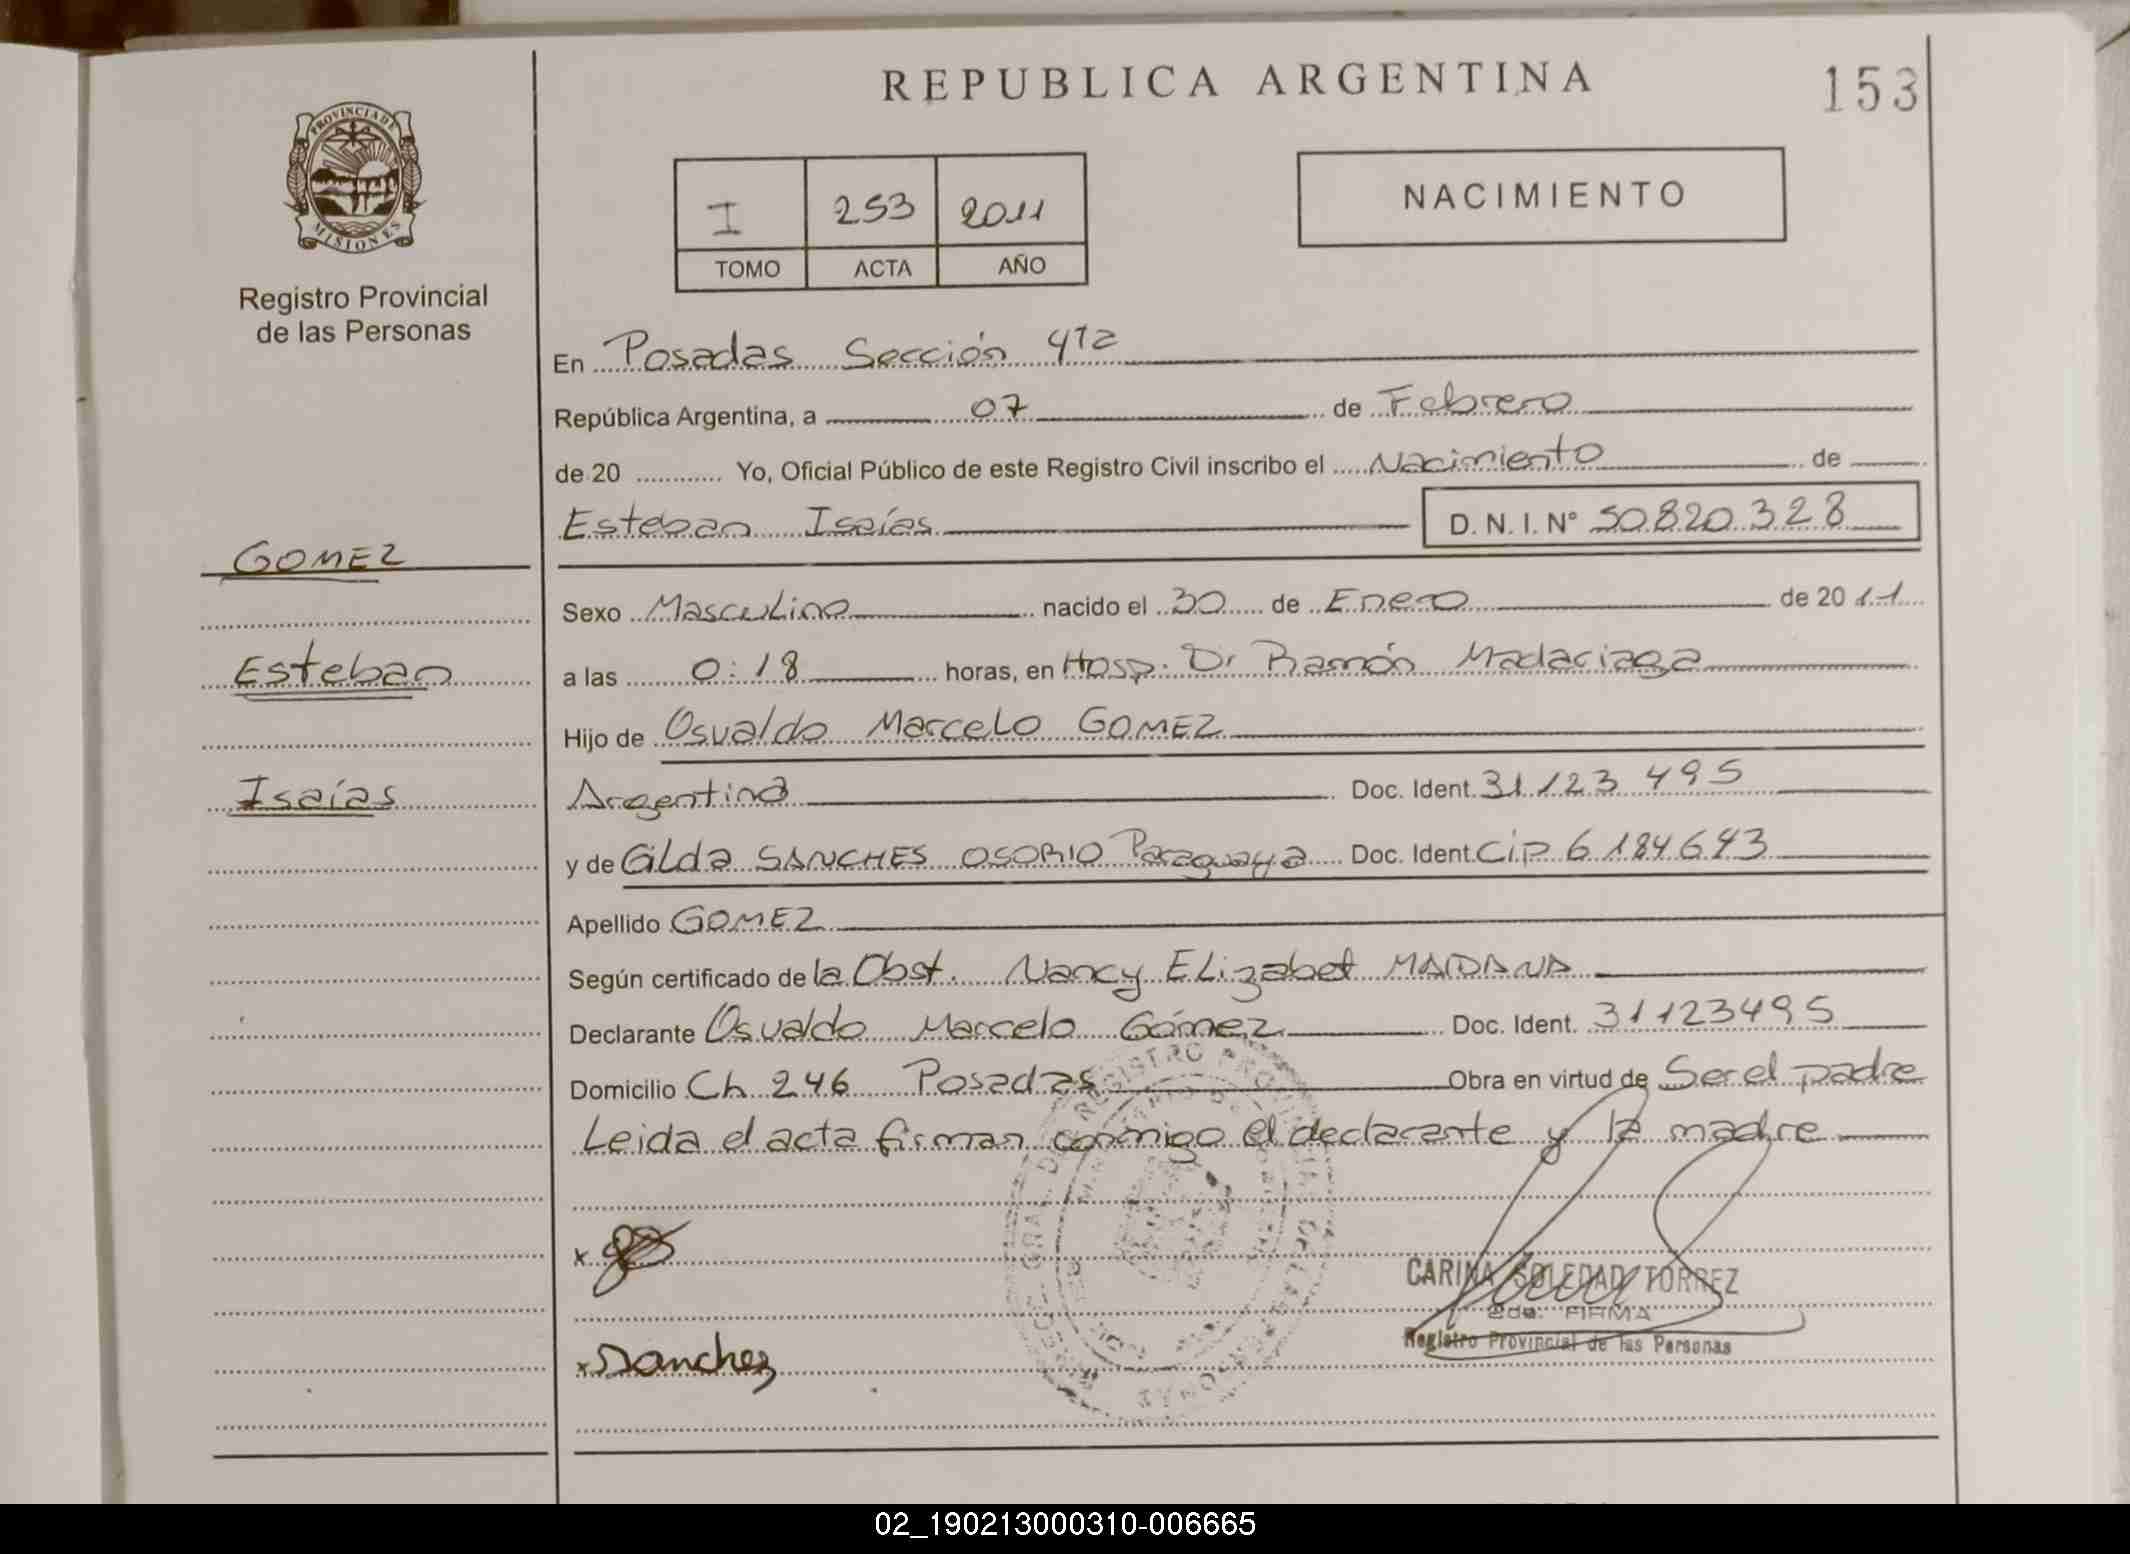 REPUBLICA ARGENTINA
153
PROVINCIA DE
MISIONES
Registro Provincial
de las Personas
I 253 2011
TOMO ACTA AÑO
NACIMIENTO
En Posadas Sección 4ta
República Argentina, a 07 de Febrero
de 20 ............ Yo, Oficial Público de este Registro Civil inscribo el Nacimiento de
Esteban Isaías D. N. I. Nº 50.820.328
GOMEZ
Esteban
Isaías
Sexo Masculino nacido el 30 de Enero de 2011
a las 0:18 horas, en Hosp. Dr Ramón Madariaga
Hijo de Osvaldo Marcelo GOMEZ
Argentina Doc. Ident. 31.123.495
y de Gilda SANCHES OSORIO Paraguaya Doc. Ident. C.i.P. 6.184.643
Apellido GOMEZ
Según certificado de la Obst. Nancy Elizabet MAIDANA
Declarante Osvaldo Marcelo Gómez Doc. Ident. 31123495
Domicilio Ch 246 Posadas Obra en virtud de Ser el padre
Leida el acta firman conmigo el declarante y la madre
x
x Sanchez
CARINA SOLEDAD TORREZ
2da. FIRMA
Registro Provincial de las Personas
02_190213000310-006665